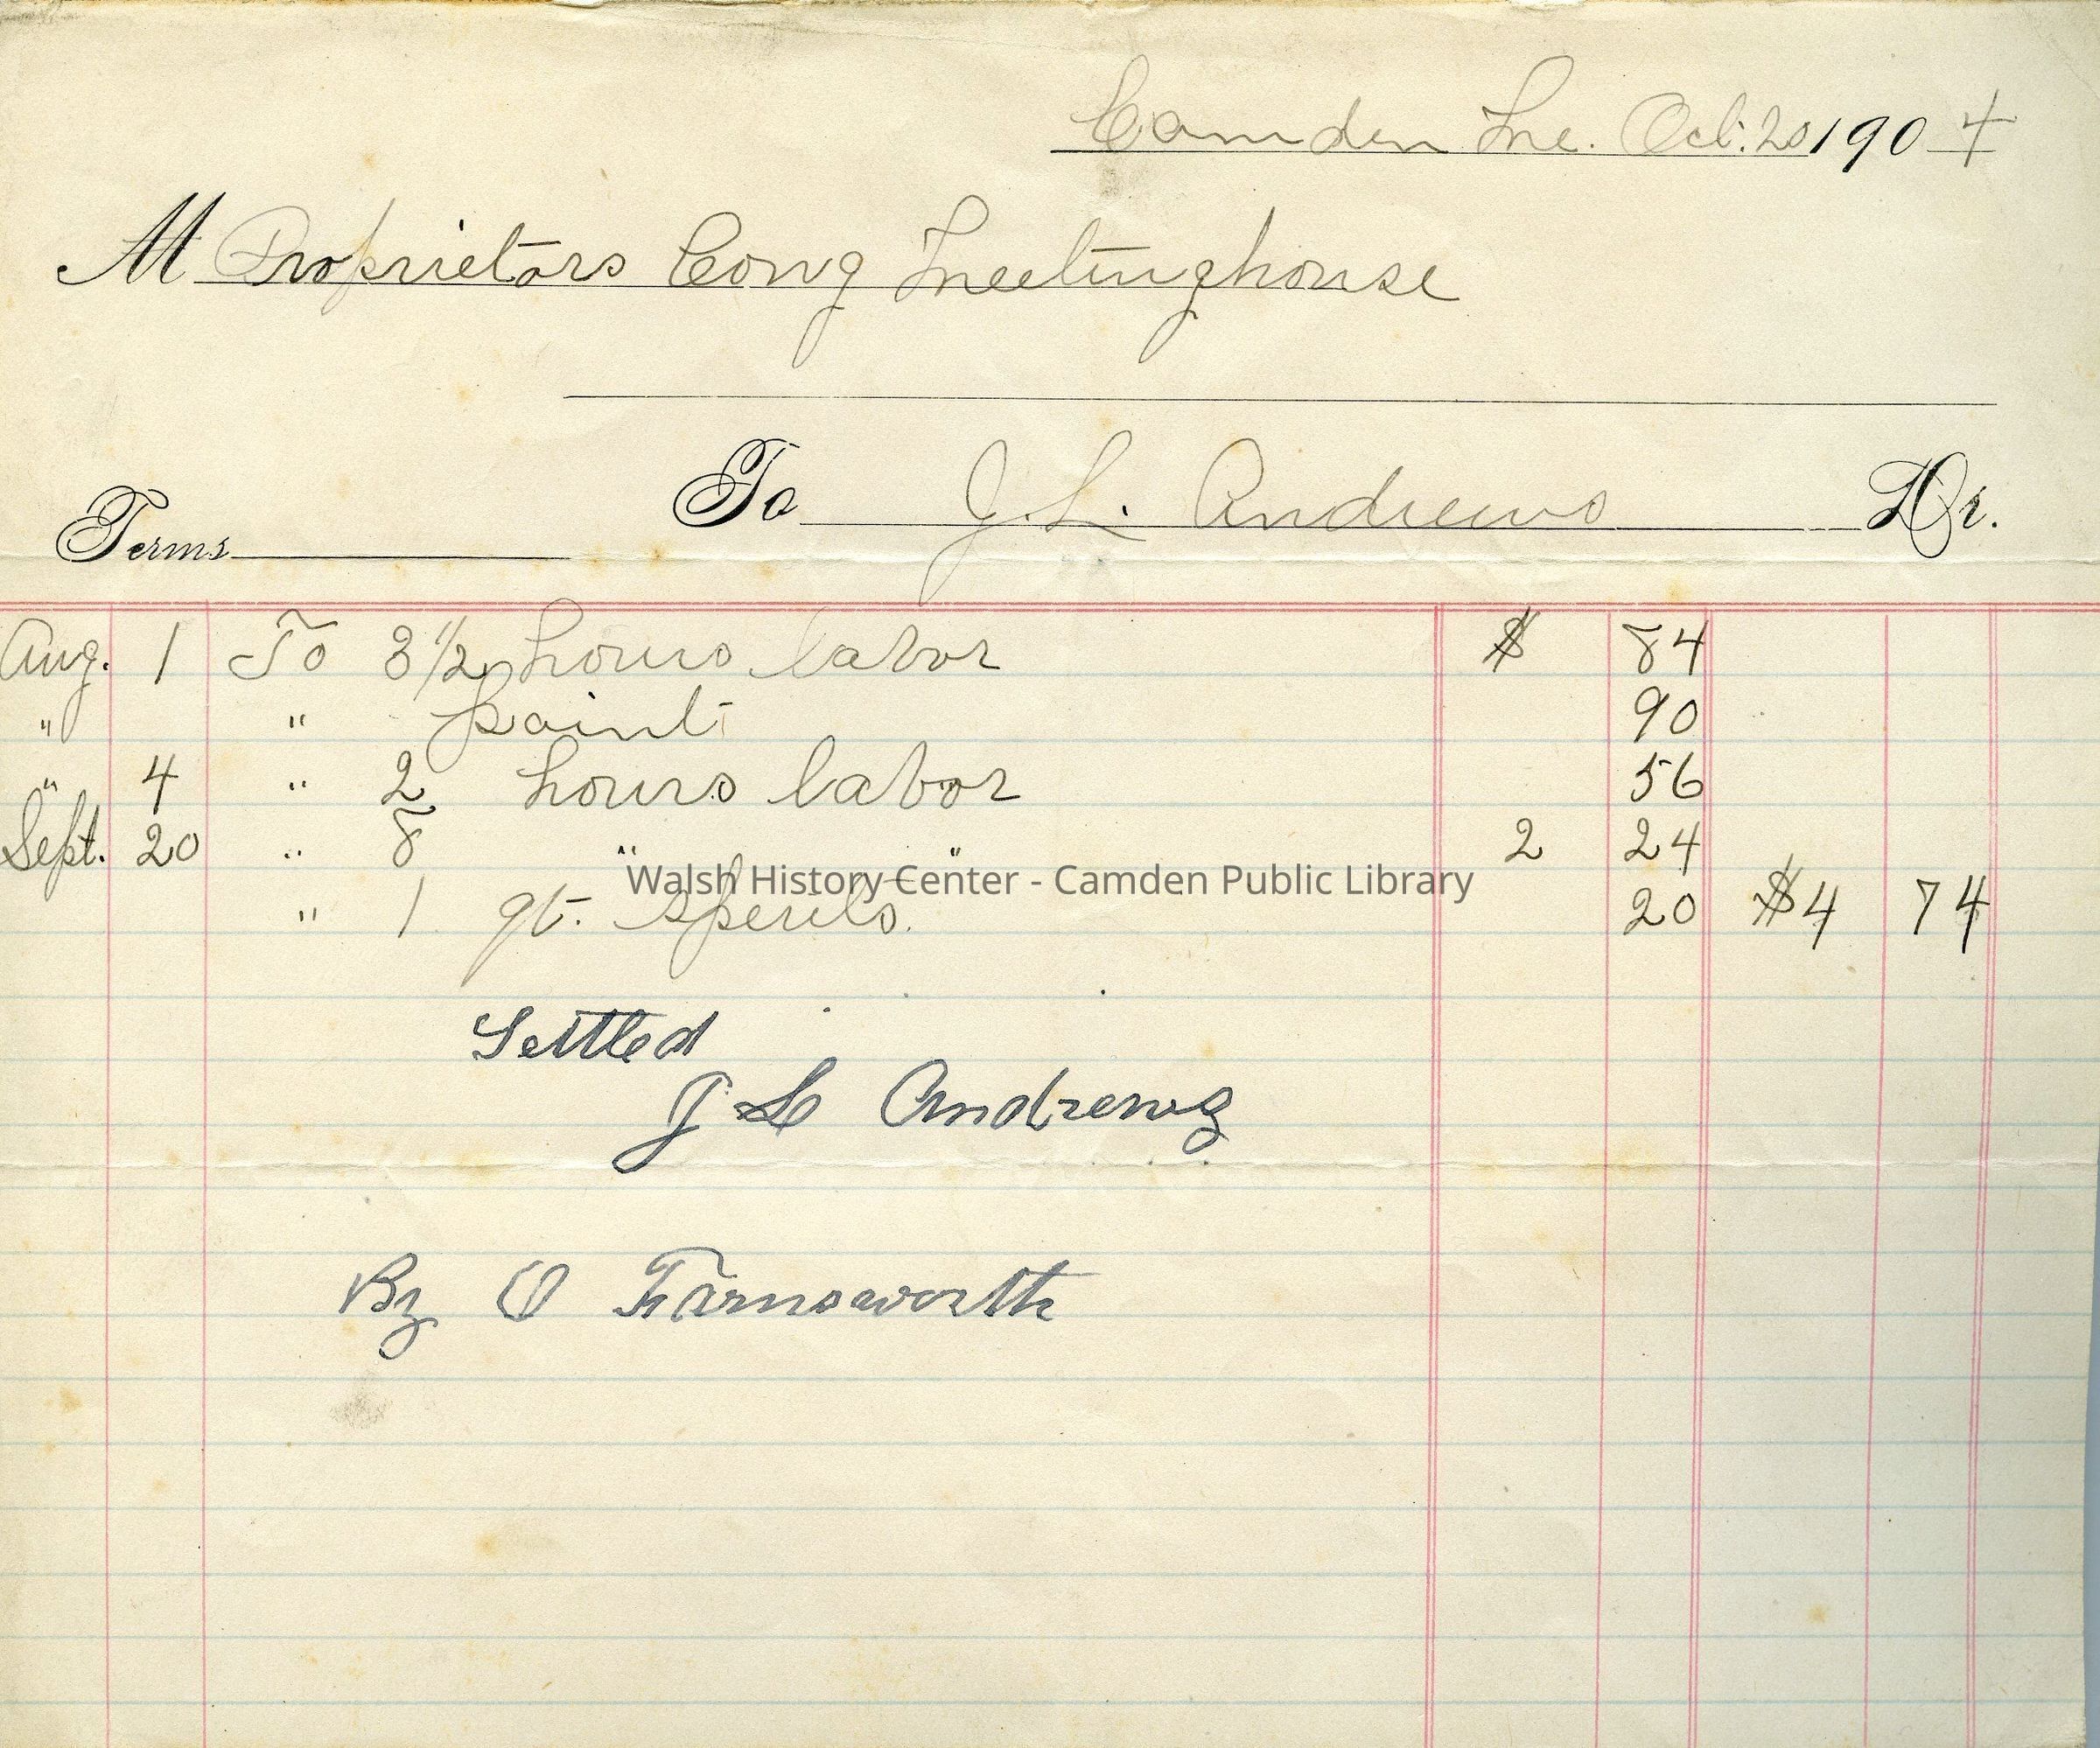 Camden Me. Oct. 20 1904
M Proprietors Cong Meetinghouse
To J. L. Andrews Dr.
Terms
Aug. 1 To 3 1/2 hours labor $ 84
" " paint 90
" 4 " 2 hours labor 56
Sept. 20 " 8 " " 2 24
Walsh History Center - Camden Public Library
" 1 qt. sperits. 20 $4 74
Settled
J L Andrews
By O Farnsworth